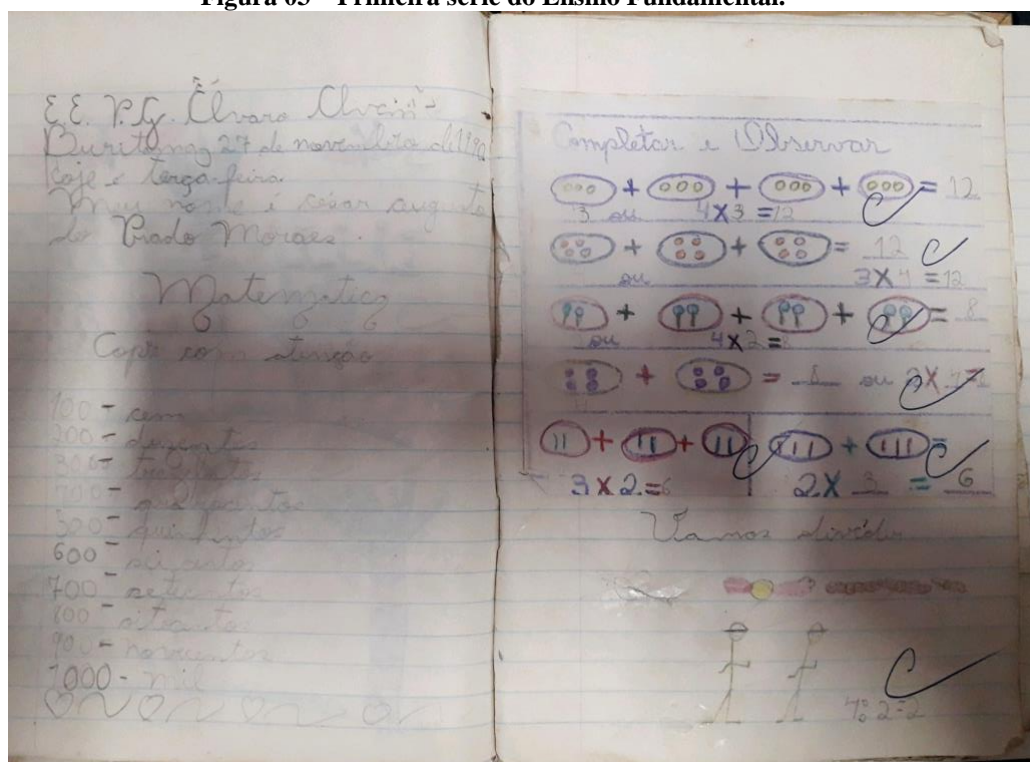 Figura 03 – Primeira série do Ensino Fundamental.
E.E. P.G. Álvaro Alvim
Buritama, 27 de novembro de
hoje é terça-feira.
Meu nome é césar augusto
do Prado Moraes.
Matemática
Copie com atenção
100 - cem
200 - duzentos
300 - trezentos
- quatrocentos
500 - quinhentos
600 -
700 - setecentos
800 - oitocentos
900 - novecentos
1000 - mil
Completar e Observar
+ + + = 12
3 ou 4 X 3 = 12
+ + = 12
ou 3 X 4 = 12
+ + + = 8
ou 4 X 2 = 8
+ = ou 2 X
4
+ + + =
3 X 2 = 6 2 X 3 = 6
Vamos dividir